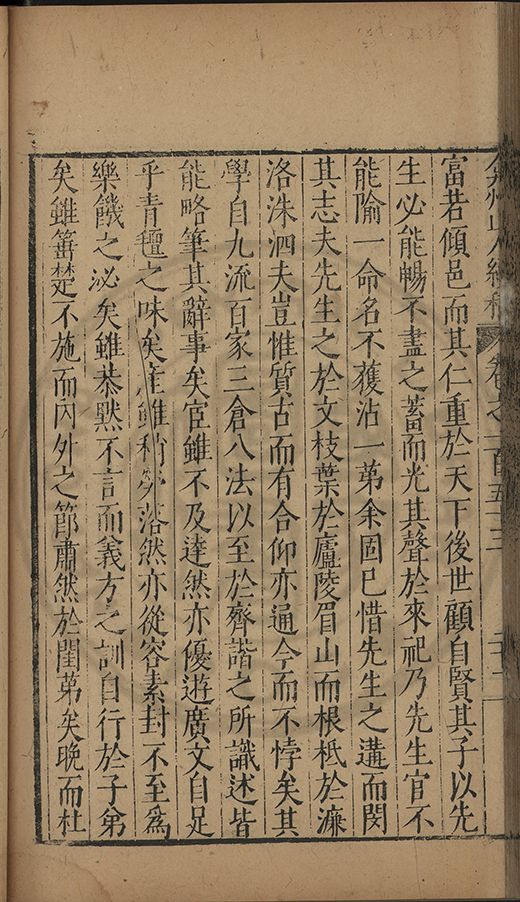 弇州山人續稿 卷之一百五十三 二十二
富若傾邑而其仁重於天下後世顧自賢其子以先
生必能暢不盡之蓄而光其聲於來祀乃先生官不
能隃一命名不獲沾一第余固已惜先生之遘而閔
其志夫先生之於文枝葉於廬陵眉山而根柢於濂
洛洙泗夫豈惟質古而有合仰亦通今而不悖矣其
學自九流百家三倉八法以至於齊諧之所識述皆
能略筆其辭事矣宦雖不及達然亦優遊廣文自足
乎青氊之味矣產雖稍
落然亦從容素封不至為
樂饑之泌矣雖恭默不言而義方之訓自行於子弟
矣雖箠楚不施而內外之節肅然於閨第矣晚而杜